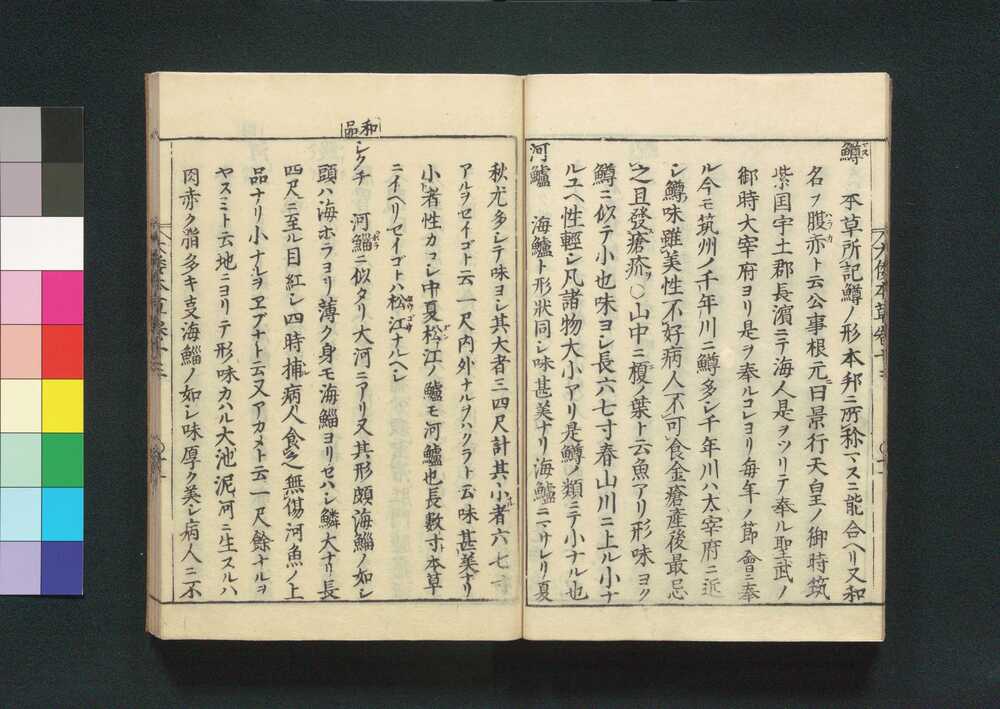 鱒 マス
本草所記鱒ノ形本邦ニ所称マスニ能合ヘリ又和
名ヲ腹赤ト云公事根元曰景行天皇ノ御時筑
ハラカ
紫国宇土郡長濱ニテ海人是ヲツリテ奉ル聖武ノ
御時大宰府ヨリ是ヲ奉ルコレヨリ毎年ノ節會ニ奉
ル今モ筑州ノ千年川ニ鱒多シ千年川ハ太宰府ニ近
シ鱒味雖美性不好病人不可食金瘡産後最忌
之且發瘡疥ヲ○山中ニ榎葉ト云魚アリ形味ヨク
鱒ニ似テ小也味ヨシ長六七寸春山川ニ上ル小ナ
ルユヘ性輕シ凡諸物大小アリ是鱒ノ類ニテ小ナル也
河鱸 海鱸ト形状同シ味甚美ナリ海鱸ニマサレリ夏
秋尤多シテ味ヨシ其大者三四尺計其小者六七寸
アルヲセイゴト云一尺内外ナルヲハクラト云味甚美ナリ
小者性カロシ中夏松江ノ鱸モ河鱸也長數寸本草
ニイヘリセイゴトハ松江ナルヘシ
和品
シクチ 河鯔ニ似タリ大河ニアリ又其形頗海鯔ノ如シ
ボラ
頭ハ海ホラヨリ薄ク身モ海鯔ヨリセハシ鱗大ナリ長
四尺ニ至ル目紅シ四時捕ル病人食之無傷河魚ノ上
品ナリ小ナルヲヱブナト云又アカメト云一尺餘ナルヲ
ヤスミト云地ニヨリテ形味カハル大池泥河ニ生スルハ
肉赤ク脂多キ支海鯔ノ如シ味厚ク美シ病人ニ不